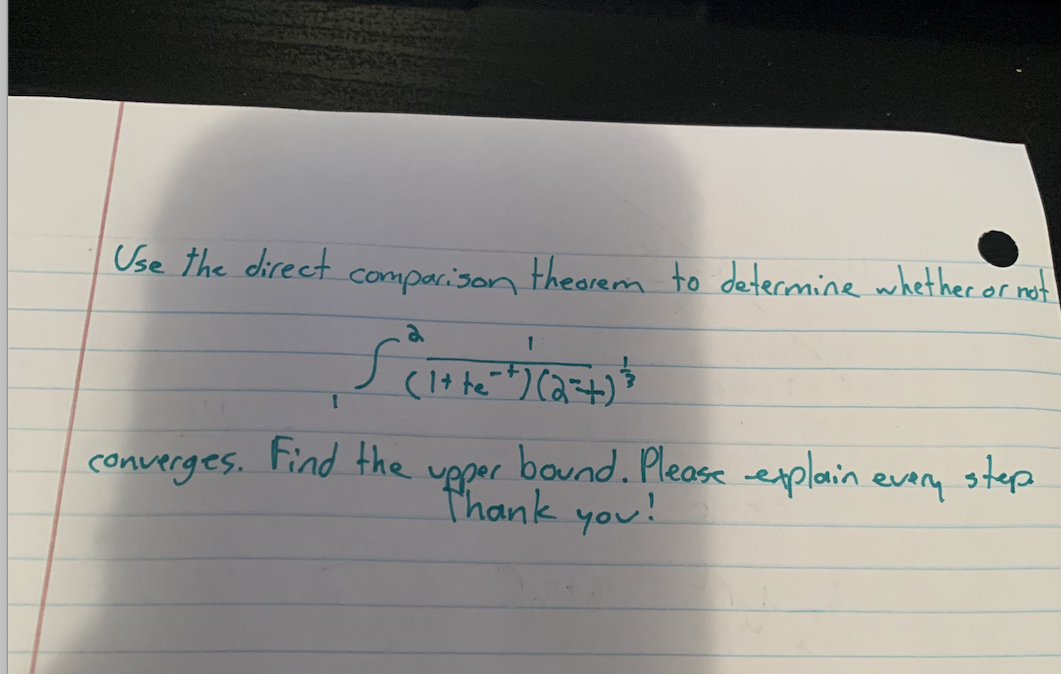 Use the direct comparison theorem to determine whether or not
∫₁² 1 / (1+te^-t)(2-t)^(1/3)
converges. Find the upper bound. Please explain every step
Thank you!